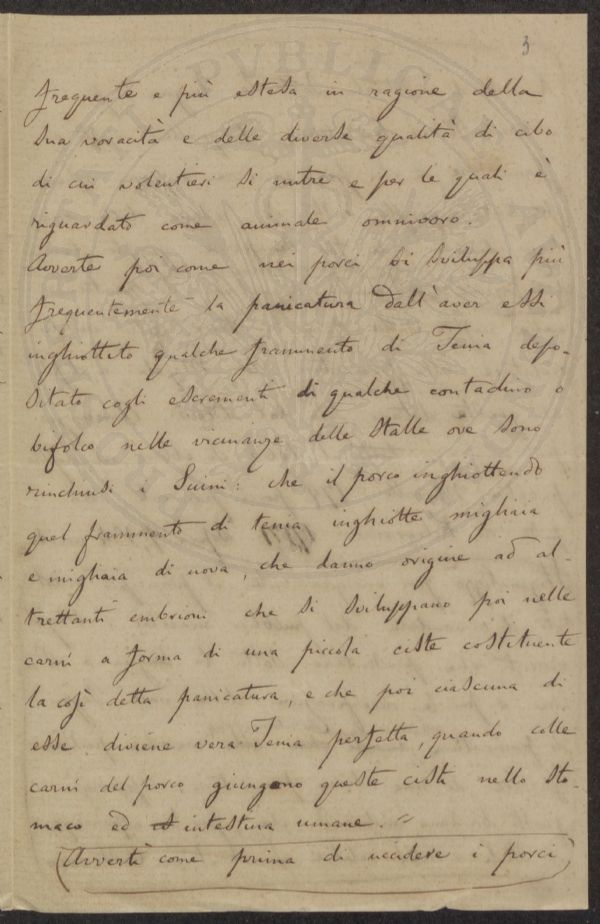 3
frequente e più estesa in ragione della
sua voracità e delle diverse qualità di cibo
di cui volentieri si nutre e per le quali è
riguardato come animale omnivoro.
Avverte poi come nei porci si sviluppa più
frequentemente la panicatura dall'aver essi
inghiottito qualche frammento di Tenia depo-
sitato cogli escrementi di qualche contadino o
bifolco nelle vicinanze delle stalle ove sono
rinchiusi i Suini: che il porco inghiottendo
quel frammento di tenia inghiotte migliaia
e migliaia di uova, che danno origine ad al-
trettanti embrioni che si sviluppano poi nelle
carni a forma di una piccola ciste costituente
la così detta panicatura, e che poi ciascuna di
esse diviene vera Tenia perfetta, quando colle
carni del porco giungono queste cisti nello sto-
maco ed intestina umane. =
(Avverti come prima di uccidere i porci)